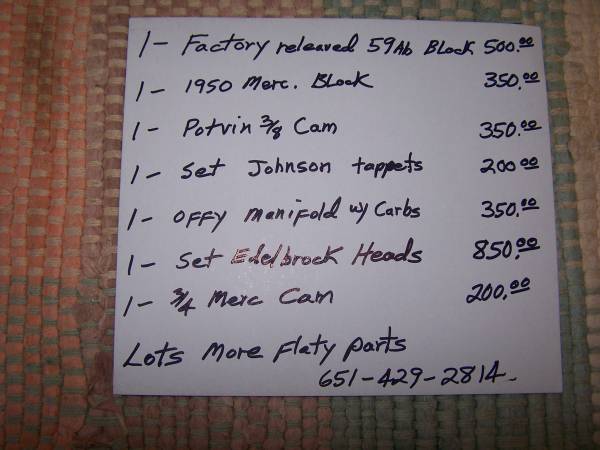 1- Factory releaved 59Ab Block 500.00
1- 1950 Merc. Block 350.00
1- Potvin 3/8 Cam 350.00
1- Set Johnson tappets 200.00
1- OFFY manifold w/ Carbs 350.00
1- Set Edelbrock Heads 850.00
1- 3/4 Merc Cam 200.00
Lots More Flaty parts
651-429-2814